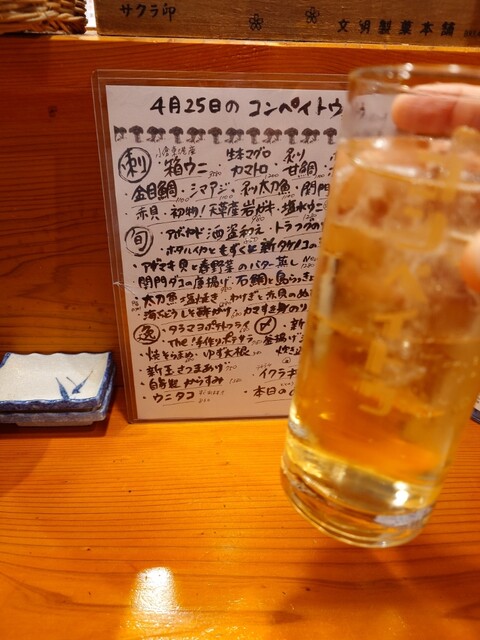 サクラ印
文明製菓本舗
4月25日の コンペイトウ
刺
箱ウニ
生本マグロ
カマトロ
甘鯛
金目鯛・シマアジ・炙り太刀魚・関門
赤貝・初物!天草産岩がき・塩水ウニ
旬
・アボカド酒盗和え・トラフグの
・ホタルイカともずくと新タケノコの
・アゲマキ貝と春野菜のバター蒸し
関門ダコの唐揚げ・石鯛と島らっきょ
・太刀魚塩焼き・わけぎと赤貝のぬ
・海ぶどう
逸
・タラマヨポテトフライ
〆
・新
・The!手作りポテサラ
・釜揚げ
・焼そらまめ・ゆず大根
炊き込
・新玉さつまあげ
・自家製 からすみ
・イクラ
・ウニタコ
・本日の